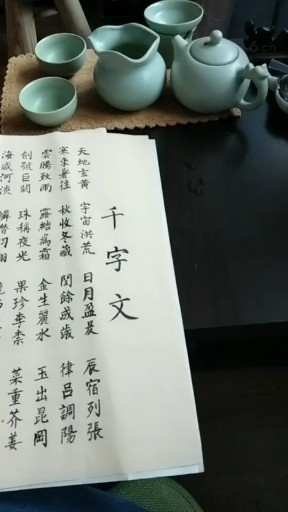 千字文
天地玄黃 宇宙洪荒 日月盈昃 辰宿列張
寒來暑往 秋收冬藏 閏餘成歲 律呂調陽
雲騰致雨 露結為霜 金生麗水 玉出昆岡
劍號巨闕 珠稱夜光 果珍李柰 菜重芥姜
海咸河淡